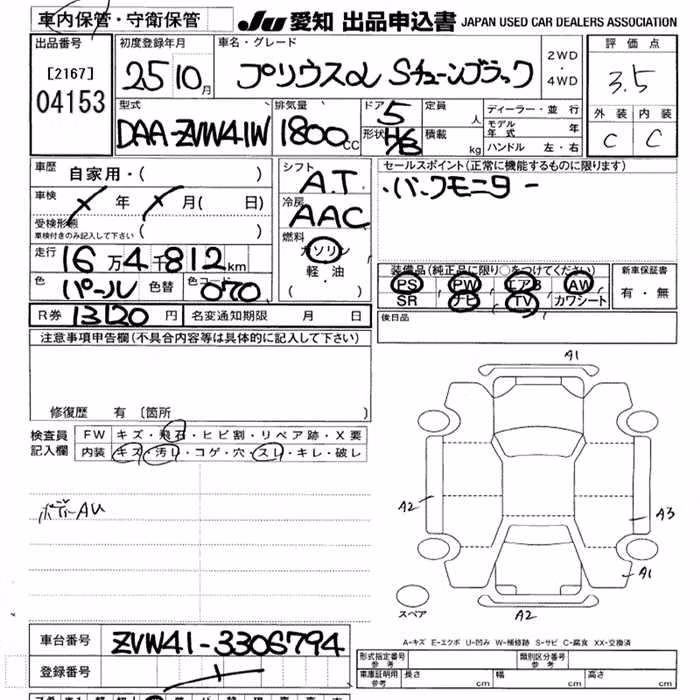 車内保管・守衛保管
JU 愛知 出品申込書 JAPAN USED CAR DEALERS ASSOCIATION
出品番号
[2167]
04153
初度登録年月
25 10月
車名・グレード
プリウスα Sチューンブラック
2WD
・
4WD
評価点
3.5
型式
DAA-ZVW41W
排気量
1800CC
ドア 5
形状 H/B
定員 人
積載 kg
ディーラー・並行
モデル年式 年
ハンドル 左・右
外装 内装
C C
車歴 自家用・( )
車検 × 年 × 月( 日)
受検形態
車検付きのみ記入して下さい ( )
走行
16万4千812km
色 パール 色替 色コード 070
R券 13120円 名変通知期限 月 日
シフト
A.T
冷房
AAC
燃料
ガソリン
軽・油
( ・ )
セールスポイント(正常に機能するものに限ります)
・バックモニター
装備品(純正品に限り○をつけてください)
PS PW エアB AW
SR ナビ TV カワシート
新車保証書
有・無
後日品
注意事項申告欄(不具合内容等は具体的に記入して下さい)
修復歴 有〔箇所 〕
検査員
記入欄
FW キズ・飛石・ヒビ割・リペア跡・X要
内装 キズ・汚レ・コゲ・穴・スレ・キレ・破レ
ボデーAU
A1
A2
A3
A1
スペア
A2
A-キズ E-エクボ U-凹み W-補修跡 S-サビ C-腐食 XX-交換済
車台番号 ZVW41-3306794
登録番号
形式指定番号
参考
類別区分番号
参考
車庫証明用
参考
長さ cm 幅 cm 高さ cm